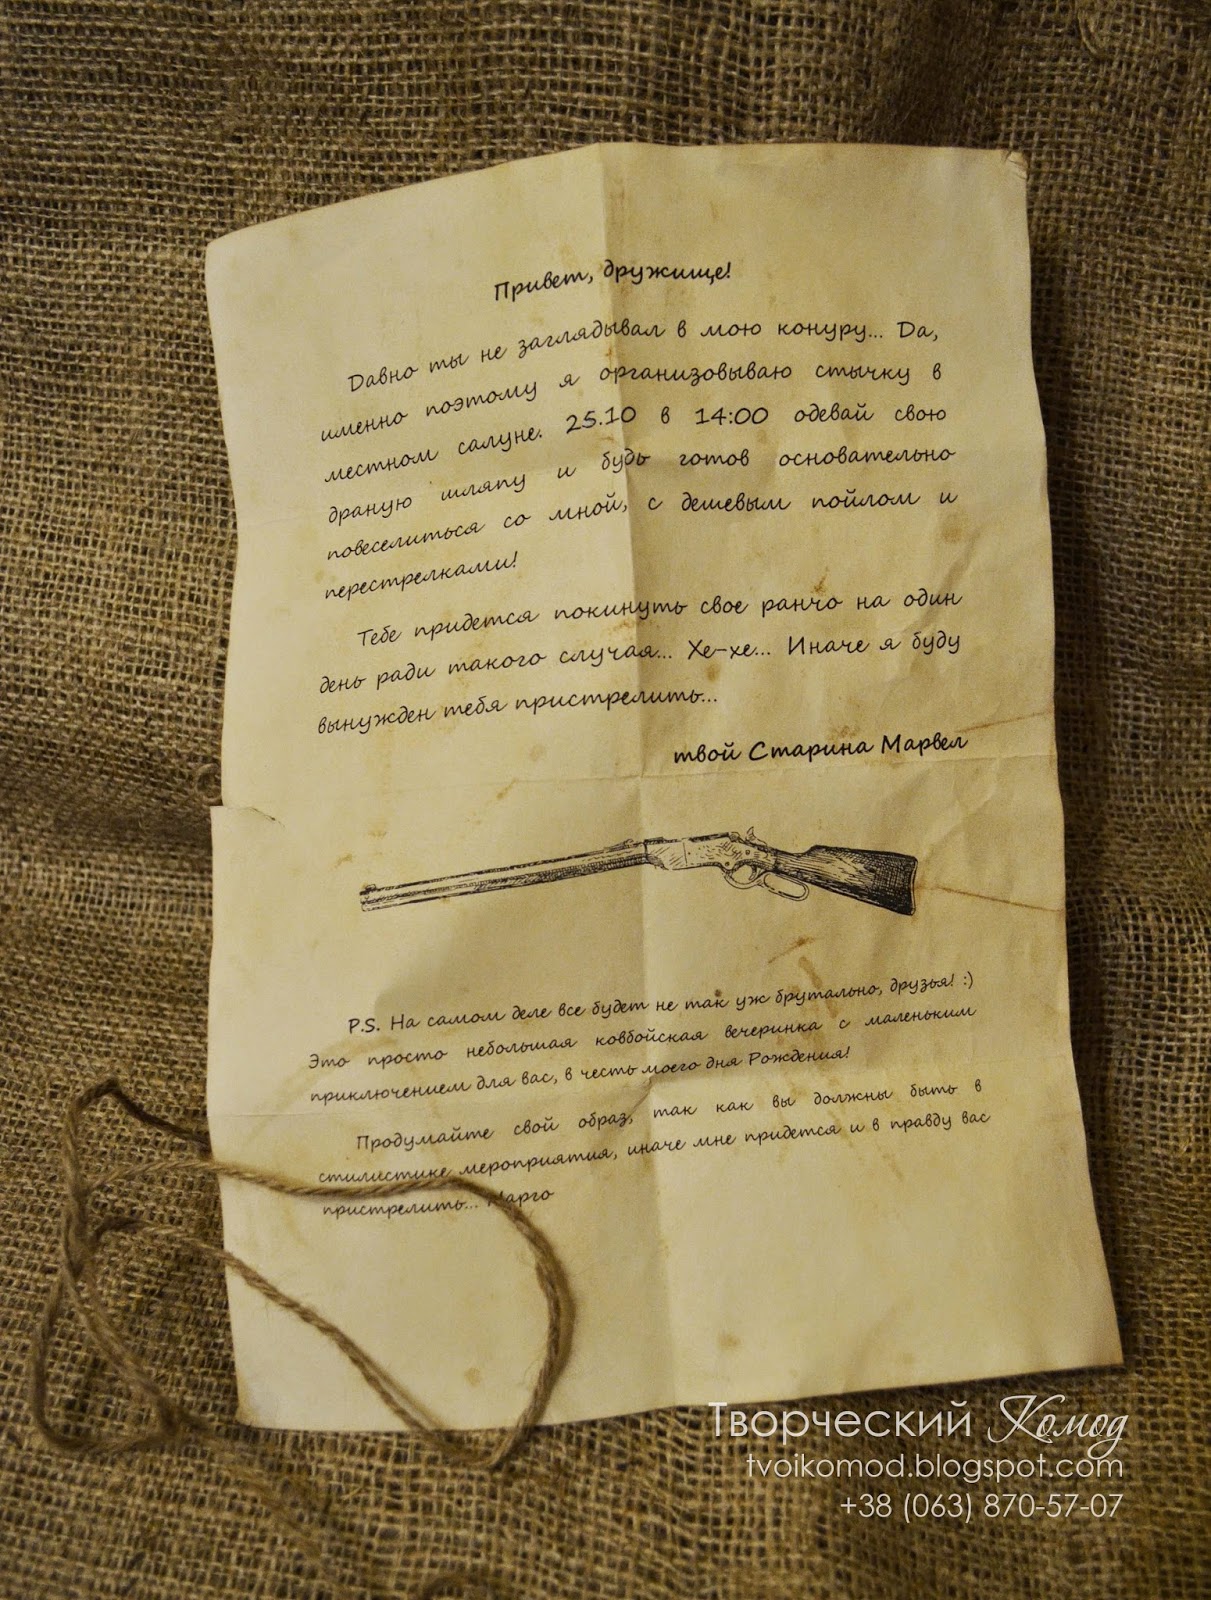 Привет, дружище!
Давно ты не заглядывал в мою конуру... Да,
именно поэтому я организовываю стычку в
местном салуне. 25.10 в 14:00 одевай свою
драную шляпу и будь готов основательно
повеселиться со мной, с дешевым пойлом и
перестрелками!
Тебе придется покинуть свое ранчо на один
день ради такого случая... Хе-хе... Иначе я буду
вынужден тебя пристрелить...
твой Старина Марвел
P.S. На самом деле все будет не так уж брутально, друзья! :)
Это просто небольшая ковбойская вечеринка с маленьким
приключением для вас, в честь моего дня Рождения!
Продумайте свой образ, так как вы должны быть в
стилистике мероприятия, иначе мне придется и в правду вас
пристрелить... Марго
Творческий Комод
tvoikomod.blogspot.com
+38 (063) 870-57-07